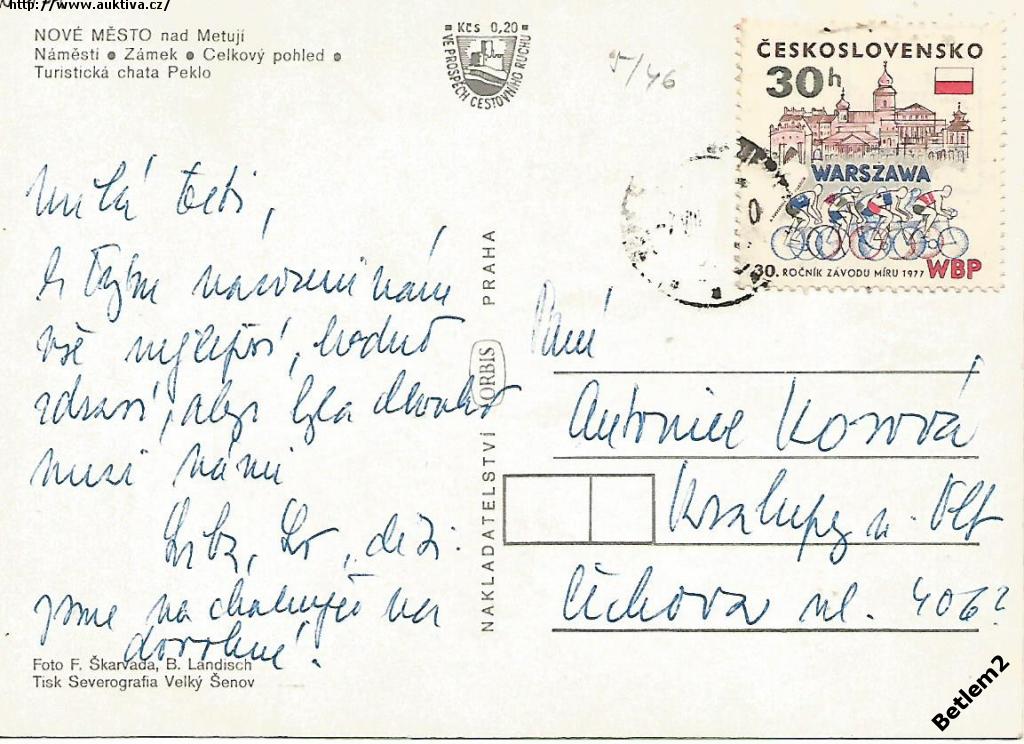 http://www.auktiva.cz/
NOVÉ MĚSTO nad Metují
Náměstí ● Zámek ● Celkový pohled ●
Turistická chata Peklo
Kčs 0,20
VE PROSPĚCH CESTOVNÍHO RUCHU
ČESKOSLOVENSKO
30h
WARSZAWA
30. ROČNÍK ZÁVODU MÍRU 1977 WBP
Milá teti,
narození
vše nejlepší, hodně
zdraví, aby byla dlouho
mezi námi
děti
jsme na chalupě na
dovolené!
NAKLADATELSTVÍ ORBIS PRAHA
Paní
Antonie
Kralupy n. Vlt
ul. 406
Foto F. Škarvada, B. Landisch
Tisk Severografia Velký Šenov
Betlem2